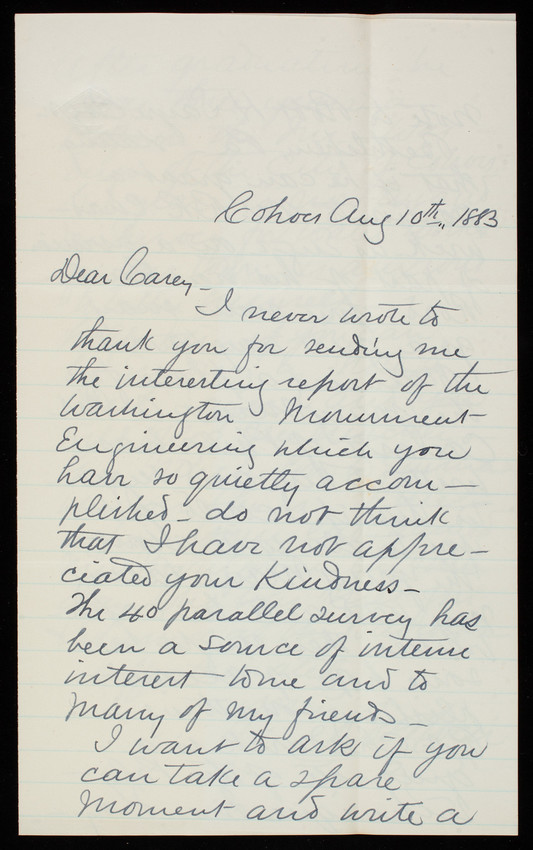 Cohoes Aug 10th, 1883
Dear Carey-
I never wrote to
thank you for sending me
the interesting report of the
Washington Monument
Engineering which you
have so quietly accom-
plished - do not think
that I have not appre-
ciated your Kindness-
The 40 parallel survey has
been a source of intense
interest to me and to
many of my friends-
I want to ask if you
can take a spare
moment and write a